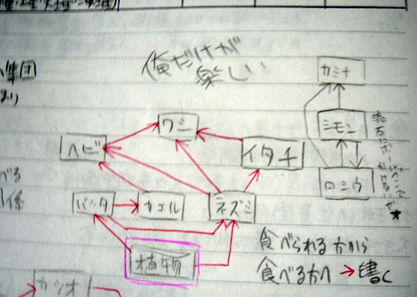 集団
俺だけが
楽しい
カミナ
ワシ
シモン
ヘビ
イタチ
ロシウ
バッタ
カエル
ネズミ
植物
食べられる方から
食べる方へ→書く
カツオ